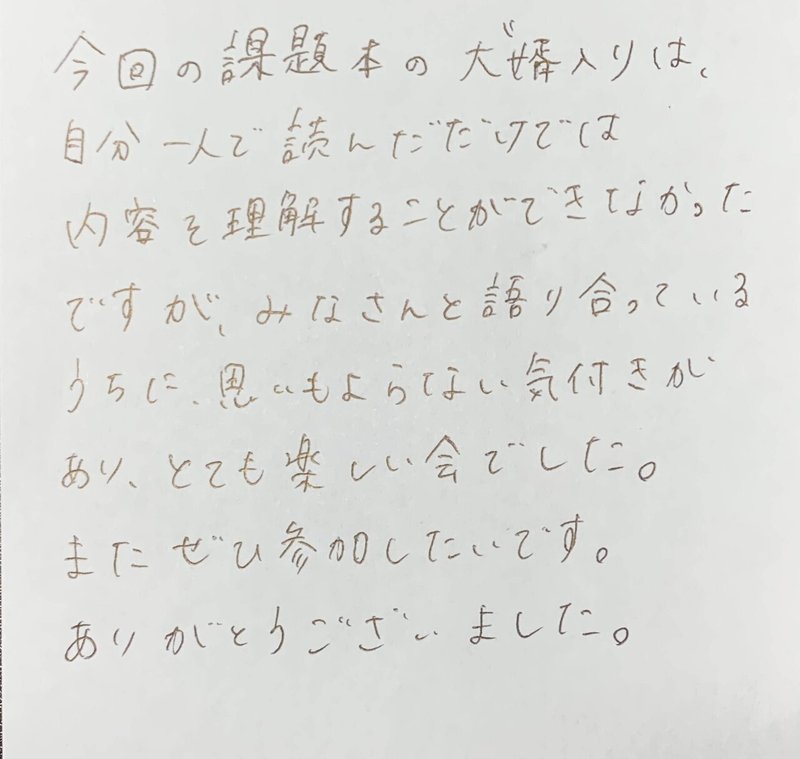 今回の課題本の犬婿入りは、
自分一人で読んだだけでは
内容を理解することができなかった
ですが、みなさんと語り合っている
うちに、思いもよらない気付きが
あり、とても楽しい会でした。
またぜひ参加したいです。
ありがとうございました。